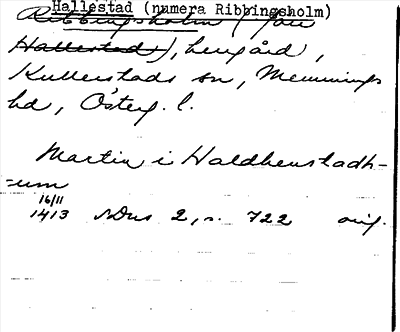 Hallestad (numera Ribbingsholm)
Ribbingsholm (förr
Hallestad), herrgård,
Kullerstads sn, Memmings
hd, Österg. l.
Martin i Haldhenstadh-
-um
16/11
1413 SDns 2, s. 722 orig.